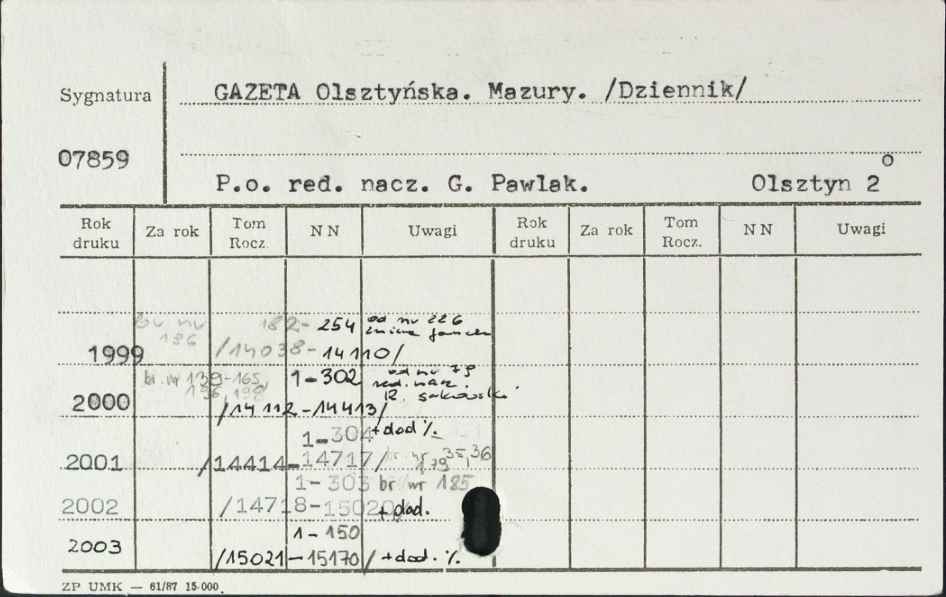 Sygnatura GAZETA Olsztyńska. Mazury. /Dziennik/
07859
P.o. red. nacz. G. Pawlak. Olsztyn 2
Rok druku Za rok Tom Rocz. NN Uwagi Rok druku Za rok Tom Rocz. NN Uwagi
br nr 182-254 od nr 226
196 zmiana
1999 /14038-14110/
br. nr 139-165, 1-302 od nr 79
196, 198 red. nacz.
2000 /14112-14413/ R. Sakowski
1-304 +dod %.
2001 /14414-14717/ br nr 35,36
179
1-303 br nr 185
2002 /14718-15020 +dod.
1-150
2003 /15021-15170/ +dod. %.
ZP UMK — 61/87 15.000.